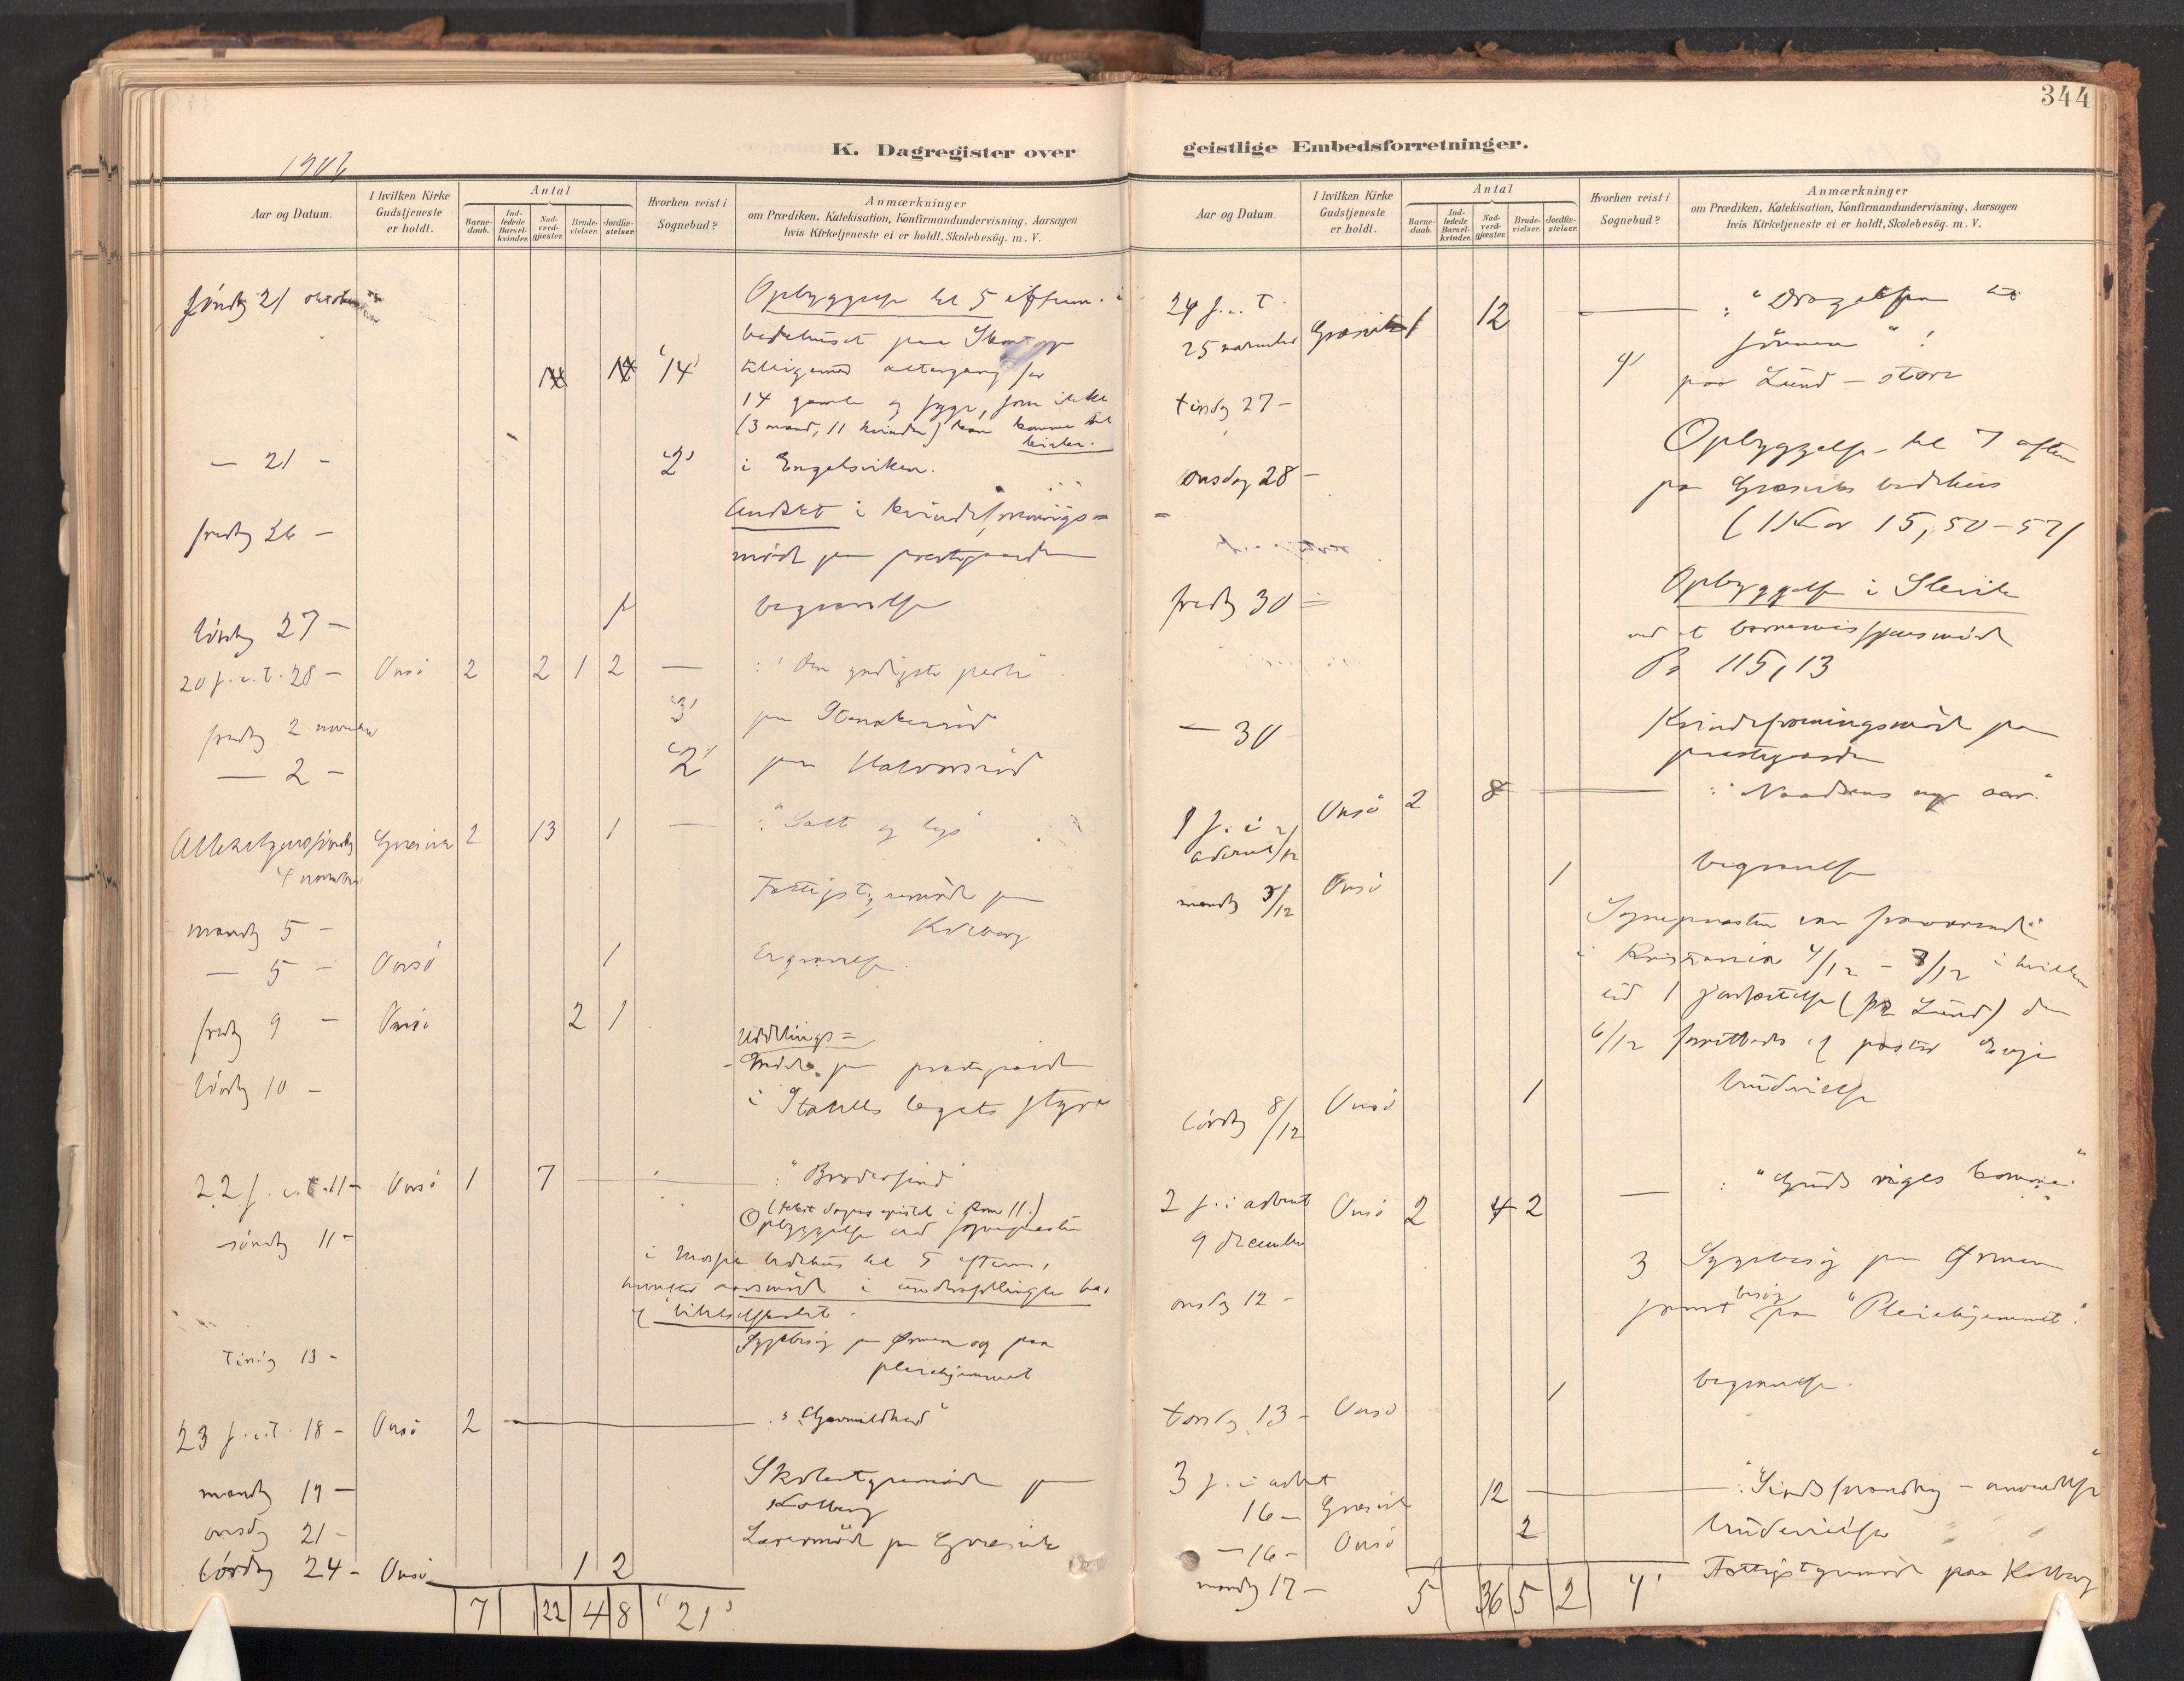 344
K. Dagregister over geistlige Embedsforretninger.
1906
Aar og Datum.
I hvilken Kirke Gudstjeneste er holdt.
Antal
Barnedaab.
Indledede Barselkvinder.
Nadverdgjæster.
Brudevielser.
Jordfæstelser.
Hvorhen reist i Sognebud?
Anmærkninger
om Prædiken, Katekisation, Konfirmandundervisning, Aarsagen
hvis Kirketjeneste ei er holdt, Skolebesög. m. V.
söndag 21 oktober Opbyggelse kl 5 efterm. i
bedehuset paa
"14" tilligemed altergang for
14 gamle og syge, som ikke
(3 mænd, 11 kvinder) kan komme til
kirken.
— 21 — "2" i Engelsviken.
fredag 26 — Andagt i kvindeforenings=
möde paa prestegaarden
lördag 27 — 1 begravelse
20 s. e. t. 28 — Onsö 2 2 1 2 — : "Den yndigste perle"
fredag 2 november "3" paa
— 2 — "2" paa Halvorsröd
Allehelgenssöndag Græsvik 2 13 1 — : "Salt og lys"
4 november
mandag 5 — Fattigstyremöde paa
Kolberg
— 5 — Onsö 1 Begravelse.
fredag 9 — Onsö 2 1
lördag 10 — Uddelings=
möde paa prestegaarden
i legats styre
22 s. e. t. 11 — Onsö 1 7 — : "Brodersind"
(tekst dagens epistel i Rom 11.)
söndag 11 — Opbyggelse ved sognepresten
i bedehus kl 5 efterm.,
aarsmöde i
Tirsdag 13 — Sygebesög paa Ørmen og paa
pleiehjemmet
23 s. e. t. 18 — Onsö 2 — : "Gavmildhed"
mandag 19 — Skolestyremöde paa
Kolberg
onsdag 21 — Lærermöde paa Græsvik
lördag 24 — Onsö 1 2
7 22 4 8 "21"
Aar og Datum.
I hvilken Kirke Gudstjeneste er holdt.
Antal
Barnedaab.
Indledede Barselkvinder.
Nadverdgjæster.
Brudevielser.
Jordfæstelser.
Hvorhen reist i Sognebud?
Anmærkninger
om Prædiken, Katekisation, Konfirmandundervisning, Aarsagen
hvis Kirketjeneste ei er holdt, Skolebesög. m. V.
24 s. e. t. — : "Dragelsen til
25 november Græsvik 1 12 sönnen"!
tirsdag 27 — paa Lund — store
onsdag 28 — Opbyggelse kl 7 aften
paa Græsviks bedehus
(1 Kor 15, 50–57)
fredag 30 — Opbyggelse i Slevik
ved et barnemissionsmöde
Ps 115, 13
— 30 Kvindeforeningsmöde paa
prestegaarden
1 s. i advent 2/12 Onsö 2 8 — : "Naadens nye aar."
mandag 3/12 Onsö 1 begravelse
Sognepresten var fraværende
i Kristiania 4/12 – 7/12 i hvilken
tid 1 jordfæstelse (paa Lund) den
6/12 forrettedes af pastor
lördag 8/12 Onsö 1 brudevielse
2 s. i advent Onsö 2 4 2 — : "Guds riges komme."
9 december
onsdag 12 — 3 Sygebesög paa Ørmen
samt besög paa "Pleiehjemmet".
torsdag 13 — Onsö 1 begravelse.
3 s. i advent
16 — Græsvik 12 — : "Sindsforandring – omvendelse"
— 16 — Onsö 2 brudevielse
mandag 17 — Fattigstyremöde paa Kolberg
5 36 5 2